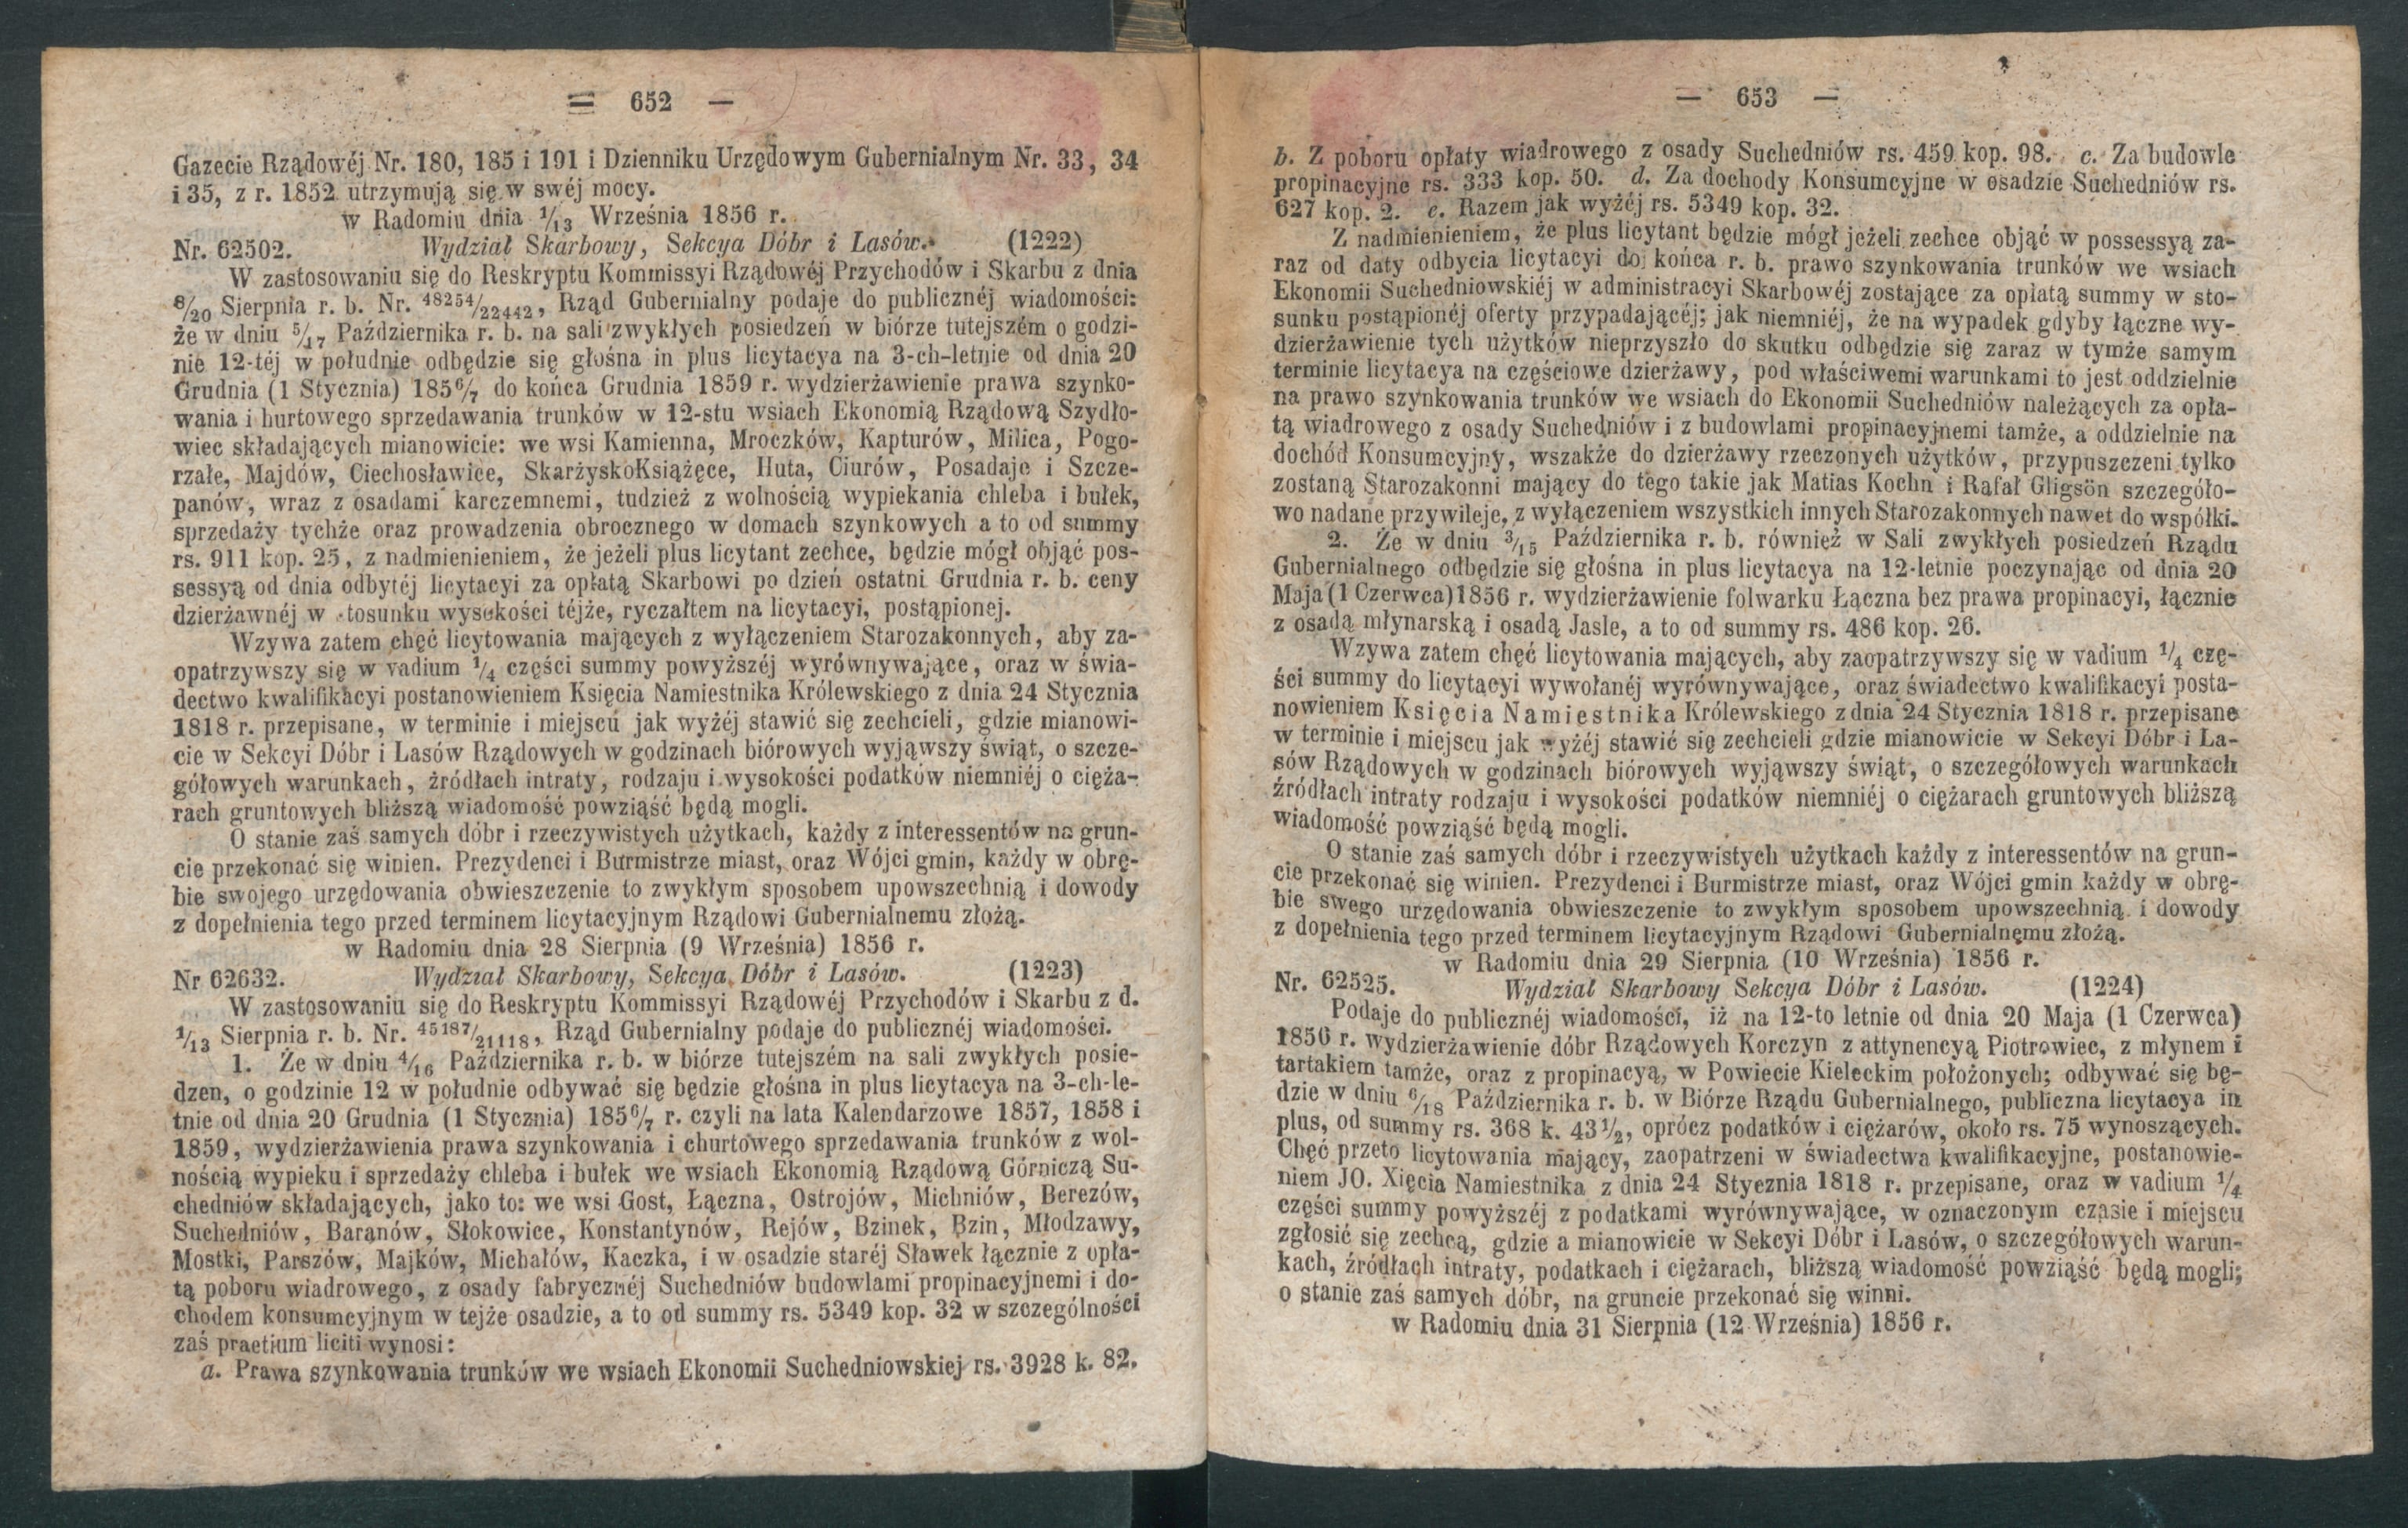 = 652 —
Gazecie Rządowéj Nr. 180, 185 i 191 i Dzienniku Urzędowym Gubernialnym Nr. 33, 34
i 35, z r. 1852 utrzymują się w swéj mocy.
w Radomiu dnia 1/13 Września 1856 r.
Nr. 62502. Wydział Skarbowy, Sekcya Dóbr i Lasów. (1222)
W zastosowaniu się do Reskryptu Kommissyi Rządowéj Przychodów i Skarbu z dnia
8/20 Sierpnia r. b. Nr. 48254/22442, Rząd Gubernialny podaje do publicznéj wiadomości:
że w dniu 5/17 Października r. b. na sali zwykłych posiedzeń w biórze tutejszém o godzi-
nie 12-téj w południe odbędzie się głośna in plus licytacya na 3-ch-letnie od dnia 20
Grudnia (1 Stycznia) 1856/7 do końca Grudnia 1859 r. wydzierżawienie prawa szynko-
wania i hurtowego sprzedawania trunków w 12-stu wsiach Ekonomią Rządową Szydło-
wiec składających mianowicie: we wsi Kamienna, Mroczków, Kapturów, Milica, Pogo-
rzałe, Majdów, Ciechosławice, SkarżyskoKsiążęce, Huta, Ciurów, Posadaje i Szcze-
panów, wraz z osadami karczemnemi, tudzież z wolnością wypiekania chleba i bułek,
sprzedaży tychże oraz prowadzenia obrocznego w domach szynkowych a to od summy
rs. 911 kop. 25, z nadmienieniem, że jeżeli plus licytant zechce, będzie mógł objąć pos-
sessyą od dnia odbytéj licytacyi za opłatą Skarbowi po dzień ostatni Grudnia r. b. ceny
dzierżawnéj w tosunku wysokości téjże, ryczałtem na licytacyi, postąpionej.
Wzywa zatem chęć licytowania mających z wyłączeniem Starozakonnych, aby za-
opatrzywszy się w vadium 1/4 części summy powyższéj wyrównywające, oraz w świa-
dectwo kwalifikacyi postanowieniem Księcia Namiestnika Królewskiego z dnia 24 Stycznia
1818 r. przepisane, w terminie i miejscu jak wyżéj stawić się zechcieli, gdzie mianowi-
cie w Sekcyi Dóbr i Lasów Rządowych w godzinach biórowych wyjąwszy świąt, o szcze-
gółowych warunkach, źródłach intraty, rodzaju i wysokości podatków niemniéj o cięża-
rach gruntowych bliższą wiadomość powziąść będą mogli.
O stanie zaś samych dóbr i rzeczywistych użytkach, każdy z interessentów na grun-
cie przekonać się winien. Prezydenci i Burmistrze miast, oraz Wójci gmin, każdy w obrę-
bie swojego urzędowania obwieszczenie to zwykłym sposobem upowszechnią i dowody
z dopełnienia tego przed terminem licytacyjnym Rządowi Gubernialnemu złożą.
w Radomiu dnia 28 Sierpnia (9 Września) 1856 r.
Nr 62632. Wydział Skarbowy, Sekcya Dóbr i Lasów. (1223)
W zastosowaniu się do Reskryptu Kommissyi Rządowéj Przychodów i Skarbu z d.
1/13 Sierpnia r. b. Nr. 45187/21118, Rząd Gubernialny podaje do publicznéj wiadomości.
1. Że w dniu 4/16 Października r. b. w biórze tutejszém na sali zwykłych posie-
dzen, o godzinie 12 w południe odbywać się będzie głośna in plus licytacya na 3-ch-le-
tnie od dnia 20 Grudnia (1 Stycznia) 1856/7 r. czyli na lata Kalendarzowe 1857, 1858 i
1859, wydzierżawienia prawa szynkowania i churtowego sprzedawania trunków z wol-
nością wypieku i sprzedaży chleba i bułek we wsiach Ekonomią Rządową Górniczą Su-
chedniów składających, jako to: we wsi Gost, Łączna, Ostrojów, Michniów, Berezów,
Suchedniów, Baranów, Słokowice, Konstantynów, Rejów, Bzinek, Bzin, Młodzawy,
Mostki, Parszów, Majków, Michałów, Kaczka, i w osadzie staréj Sławek łącznie z opła-
tą poboru wiadrowego, z osady fabrycznéj Suchedniów budowlami propinacyjnemi i do-
chodem konsumcyjnym w tejże osadzie, a to od summy rs. 5349 kop. 32 w szczególności
zaś praetium liciti wynosi:
a. Prawa szynkowania trunków we wsiach Ekonomii Suchedniowskiej rs. 3928 k. 82.
— 653 —
b. Z poboru opłaty wiadrowego z osady Suchedniów rs. 459 kop. 98. c. Za budowle
propinacyjne rs. 333 kop. 50. d. Za dochody Konsumcyjne w osadzie Suchedniów rs.
627 kop. 2. e. Razem jak wyżéj rs. 5349 kop. 32.
Z nadmienieniem, że plus licytant będzie mógł jeżeli zechce objąć w possessyą za-
raz od daty odbycia licytacyi do końca r. b. prawo szynkowania trunków we wsiach
Ekonomii Suchedniowskiéj w administracyi Skarbowéj zostające za opłatą summy w sto-
sunku postąpionéj oferty przypadającéj; jak niemniéj, że na wypadek gdyby łączne wy-
dzierżawienie tych użytków nieprzyszło do skutku odbędzie się zaraz w tymże samym
terminie licytacya na częściowe dzierżawy, pod właściwemi warunkami to jest oddzielnie
na prawo szynkowania trunków we wsiach do Ekonomii Suchedniów należących za opła-
tą wiadrowego z osady Suchedniów i z budowlami propinacyjnemi tamże, a oddzielnie na
dochód Konsumcyjny, wszakże do dzierżawy rzeczonych użytków, przypuszczeni tylko
zostaną Starozakonni mający do tego takie jak Matias Kochn i Rafał Gligsön szczegóło-
wo nadane przywileje, z wyłączeniem wszystkich innych Starozakonnych nawet do współki.
2. Że w dniu 3/15 Października r. b. również w Sali zwykłych posiedzeń Rządu
Gubernialnego odbędzie się głośna in plus licytacya na 12-letnie poczynając od dnia 20
Maja (1 Czerwca) 1856 r. wydzierżawienie folwarku Łączna bez prawa propinacyi, łącznie
z osadą młynarską i osadą Jasle, a to od summy rs. 486 kop. 26.
Wzywa zatem chęć licytowania mających, aby zaopatrzywszy się w vadium 1/4 czę-
ści summy do licytacyi wywołanéj wyrównywające, oraz świadectwo kwalifikacyi posta-
nowieniem Księcia Namiestnika Królewskiego z dnia 24 Stycznia 1818 r. przepisane
w terminie i miejscu jak wyżéj stawić się zechcieli gdzie mianowicie w Sekcyi Dóbr i La-
sów Rządowych w godzinach biórowych wyjąwszy świąt, o szczegółowych warunkach
źródłach intraty rodzaju i wysokości podatków niemniéj o ciężarach gruntowych bliższą
wiadomość powziąść będą mogli.
O stanie zaś samych dóbr i rzeczywistych użytkach każdy z interessentów na grun-
cie przekonać się winien. Prezydenci i Burmistrze miast, oraz Wójci gmin każdy w obrę-
bie swego urzędowania obwieszczenie to zwykłym sposobem upowszechnią i dowody
z dopełnienia tego przed terminem licytacyjnym Rządowi Gubernialnemu złożą.
w Radomiu dnia 29 Sierpnia (10 Września) 1856 r.
Nr. 62525. Wydział Skarbowy Sekcya Dóbr i Lasów. (1224)
Podaje do publicznéj wiadomości, iż na 12-to letnie od dnia 20 Maja (1 Czerwca)
1856 r. wydzierżawienie dóbr Rządowych Korczyn z attynencyą Piotrowiec, z młynem i
tartakiem tamże, oraz z propinacyą, w Powiecie Kieleckim położonych; odbywać się bę-
dzie w dniu 6/18 Października r. b. w Biórze Rządu Gubernialnego, publiczna licytacya in
plus, od summy rs. 368 k. 43 1/2, oprócz podatków i ciężarów, około rs. 75 wynoszących.
Chęć przeto licytowania mający, zaopatrzeni w świadectwa kwalifikacyjne, postanowie-
niem JO. Xięcia Namiestnika z dnia 24 Stycznia 1818 r. przepisane, oraz w vadium 1/4
części summy powyższéj z podatkami wyrównywające, w oznaczonym czasie i miejscu
zgłosić się zechcą, gdzie a mianowicie w Sekcyi Dóbr i Lasów, o szczegółowych warun-
kach, źródłach intraty, podatkach i ciężarach, bliższą wiadomość powziąść będą mogli;
o stanie zaś samych dóbr, na gruncie przekonać się winni.
w Radomiu dnia 31 Sierpnia (12 Września) 1856 r.